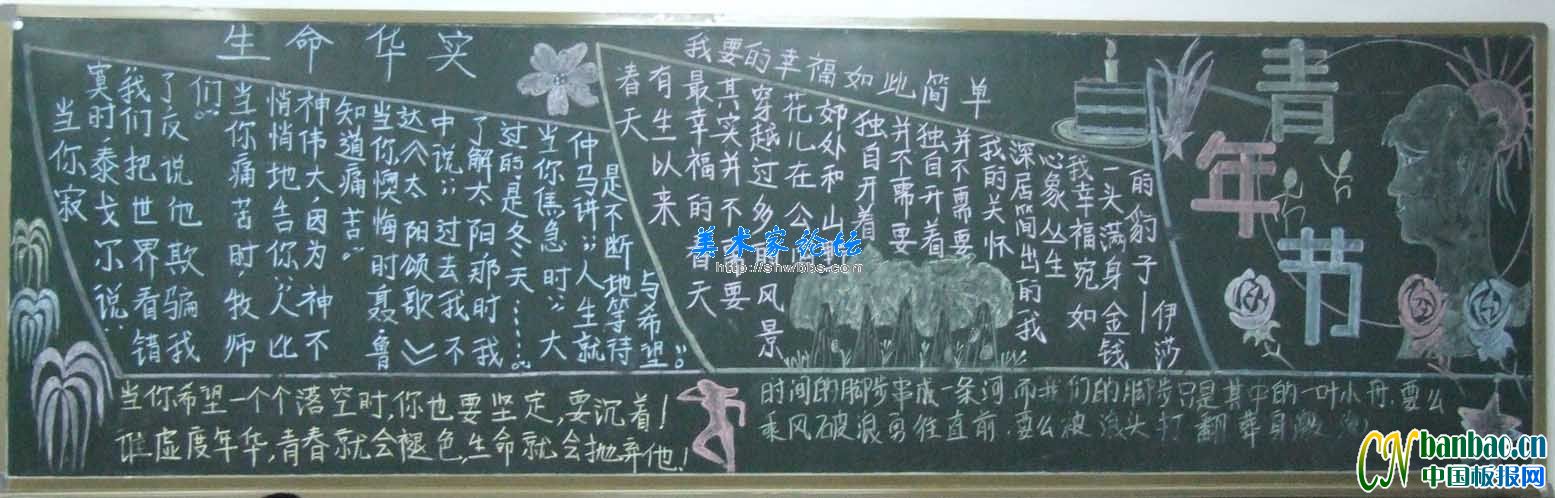 生命华实
当你寂
寞时泰戈尔说:
我们把世界看错
了反说他欺骗我
们。
当你痛苦时,牧师
悄悄地告你:人比
神伟大,因为神不
知道痛苦。
当你懊悔时聂鲁
达《太阳颂歌》
中说:过去我不
了解太阳那时我
过的是冬天……
当你焦急时:大
仲马讲:人生就
是不断地等待
与希望"。
我要的幸福如此简单
春天
有生以来
最幸福的春天
其实并不需要
穿越过多的风景
花儿在公
郊处和山野
独自开着
并不需要
独自开着
并不需要
我的关怀
深居简出的我
心象丛生
我幸福宛如
一头满身金钱
的豹子—伊莎
青年节
当你希望一个个落空时,你也要坚定,要沉着!
谁虚度年华,青春就会褪色,生命就会抛弃他!
时间的脚步串成一条河,而我们的脚步只是其中的一叶小舟,要么
乘风破浪勇往直前,要么被浪头打翻葬身
美术家论坛
http://shwbbs.com
CN banbao.cn
中国板报网